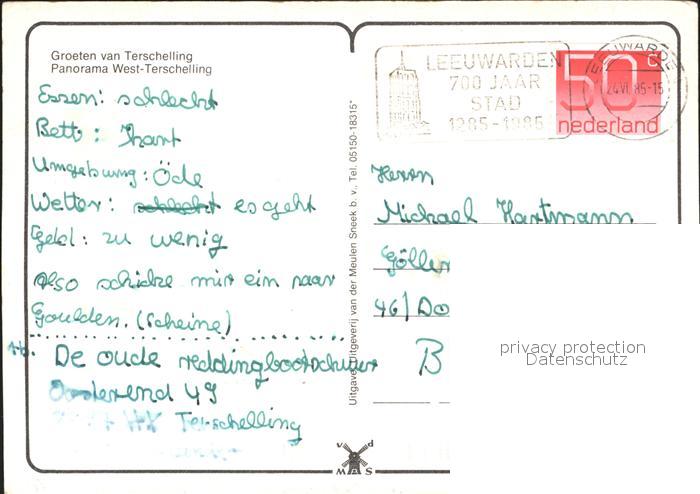 Groeten van Terschelling
Panorama West-Terschelling
Essen: schlecht
Bett: Hart
Umgebung: Öde
Wetter: schlecht es geht
Geld: zu wenig
Also schicke mir ein paar
Goulden. (Scheine)
De oude reddingbootschuur
Oosterend 49
Terschelling
Uitgave: Uitgeverij van der Meulen Sneek b.v., Tel. 05150-18315*
LEEUWARDEN
700 JAAR
STAD
1285-1985
50 c
nederland
LEEUWARDEN
24 VI 85-15
Herrn
Michael Hartmann
Göller
46/Do
B
privacy protection
Datenschutz
v d
MAS